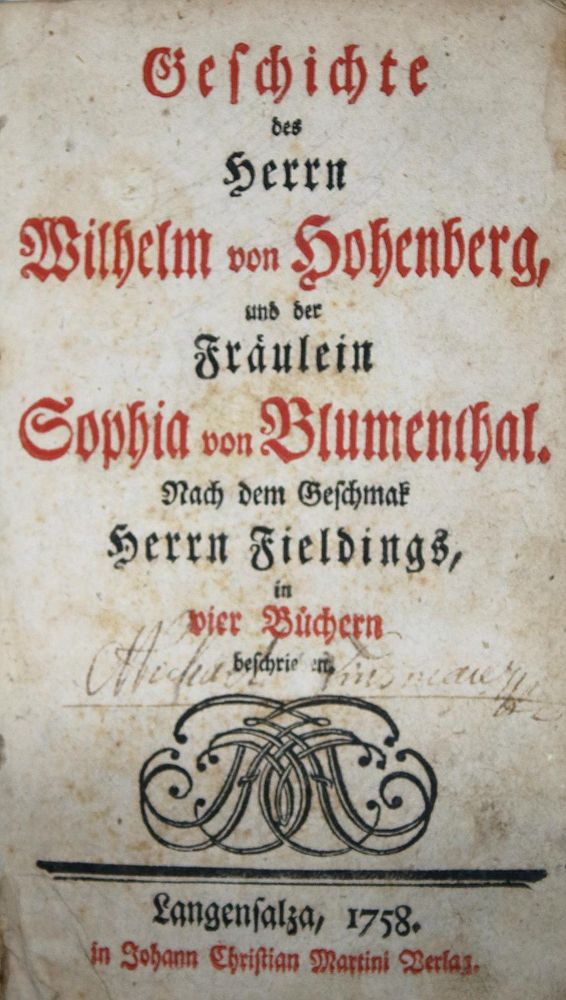 Geschichte
des
Herrn
Wilhelm von Hohenberg,
und der
Fräulein
Sophia von Blumenthal.
Nach dem Geschmak
Herrn Fieldings,
in
vier Büchern
beschrie en.
Michael
Langensalza, 1758.
in Johann Christian Martini Verlag.